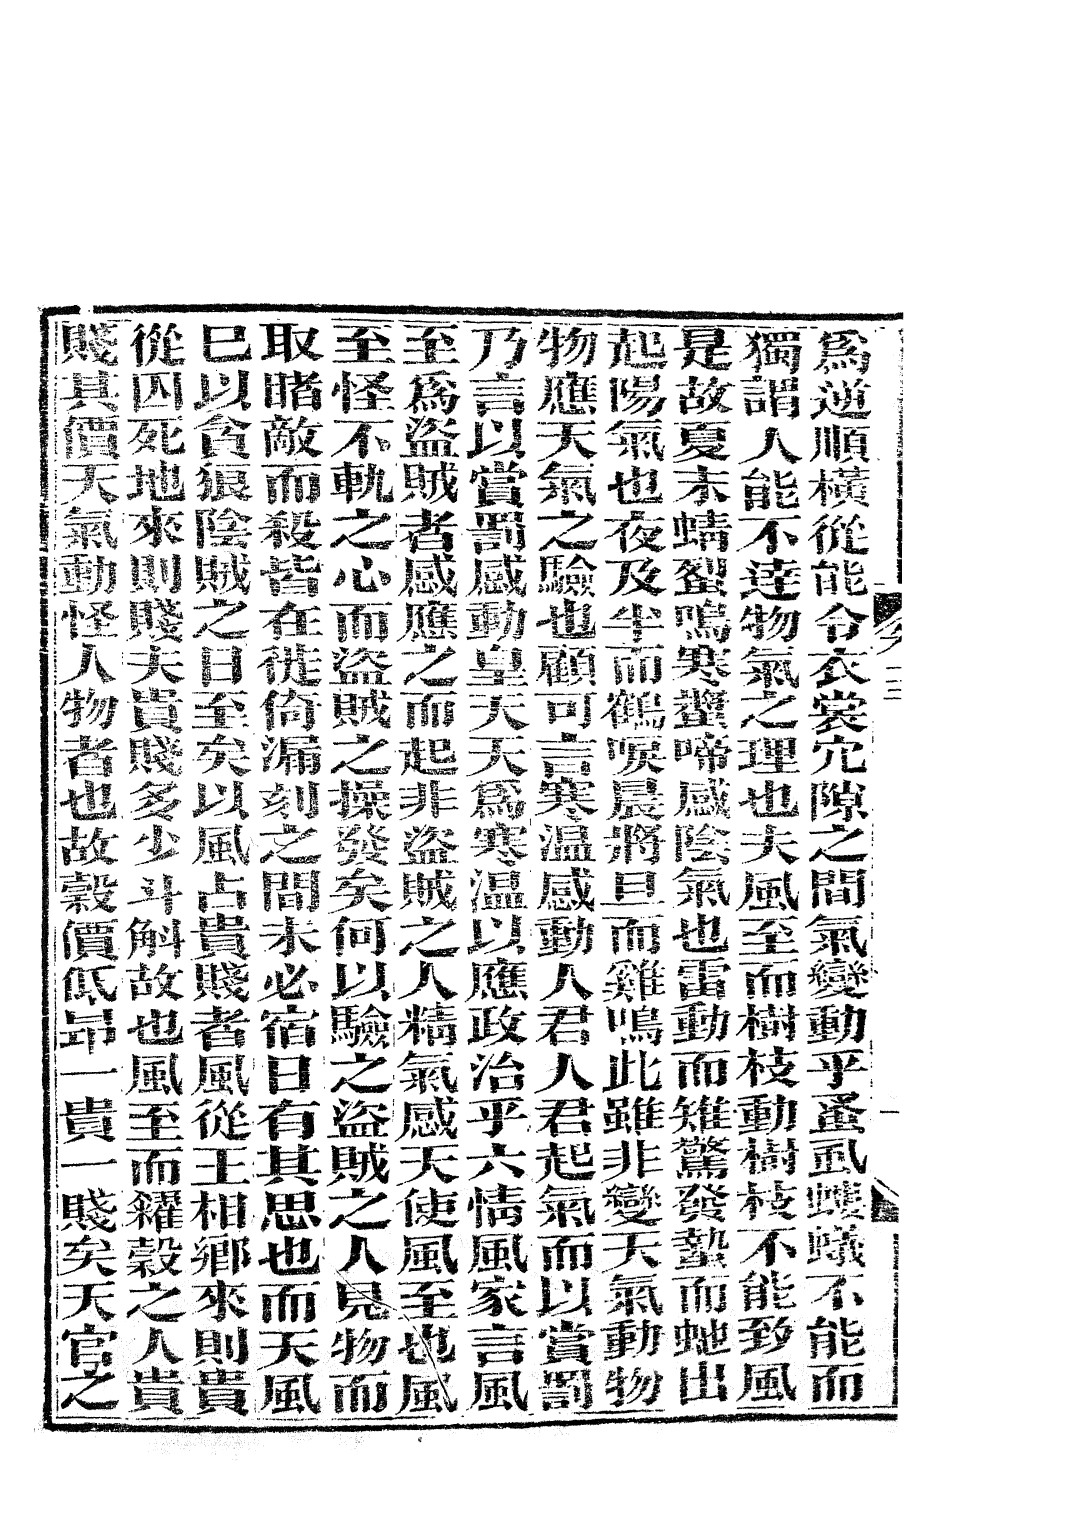 爲逆順橫從能令衣裳穴隙之間氣變動乎蚤虱螻蟻不能而
獨謂人能不逹物氣之理也夫風至而樹枝動樹枝不能致風
是故夏末蜻𧊿鳴寒螿啼感陰氣也雷動而雉驚發蟄而虵出
起陽氣也夜及半而鶴唳晨將旦而雞鳴此雖非變天氣動物
物應天氣之驗也顧可言寒温感動人君人君起氣而以賞罰
乃言以賞罰感動皇天天爲寒温以應政治乎六情風家言風
至爲盜賊者感應之而起非盜賊之人精氣感天使風至也風
至怪不軌之心而盜賊之操發矣何以驗之盜賊之人見物而
取睹敵而殺皆在徙倚漏刻之間未必宿日有其思也而天風
已以貪狼陰賊之日至矣以風占貴賤者風從王相鄉來則貴
從囚死地來則賤夫貴賤多少斗斛故也風至而糴穀之人貴
賤其價天氣動怪人物者也故穀價低昻一貴一賤矣天官之